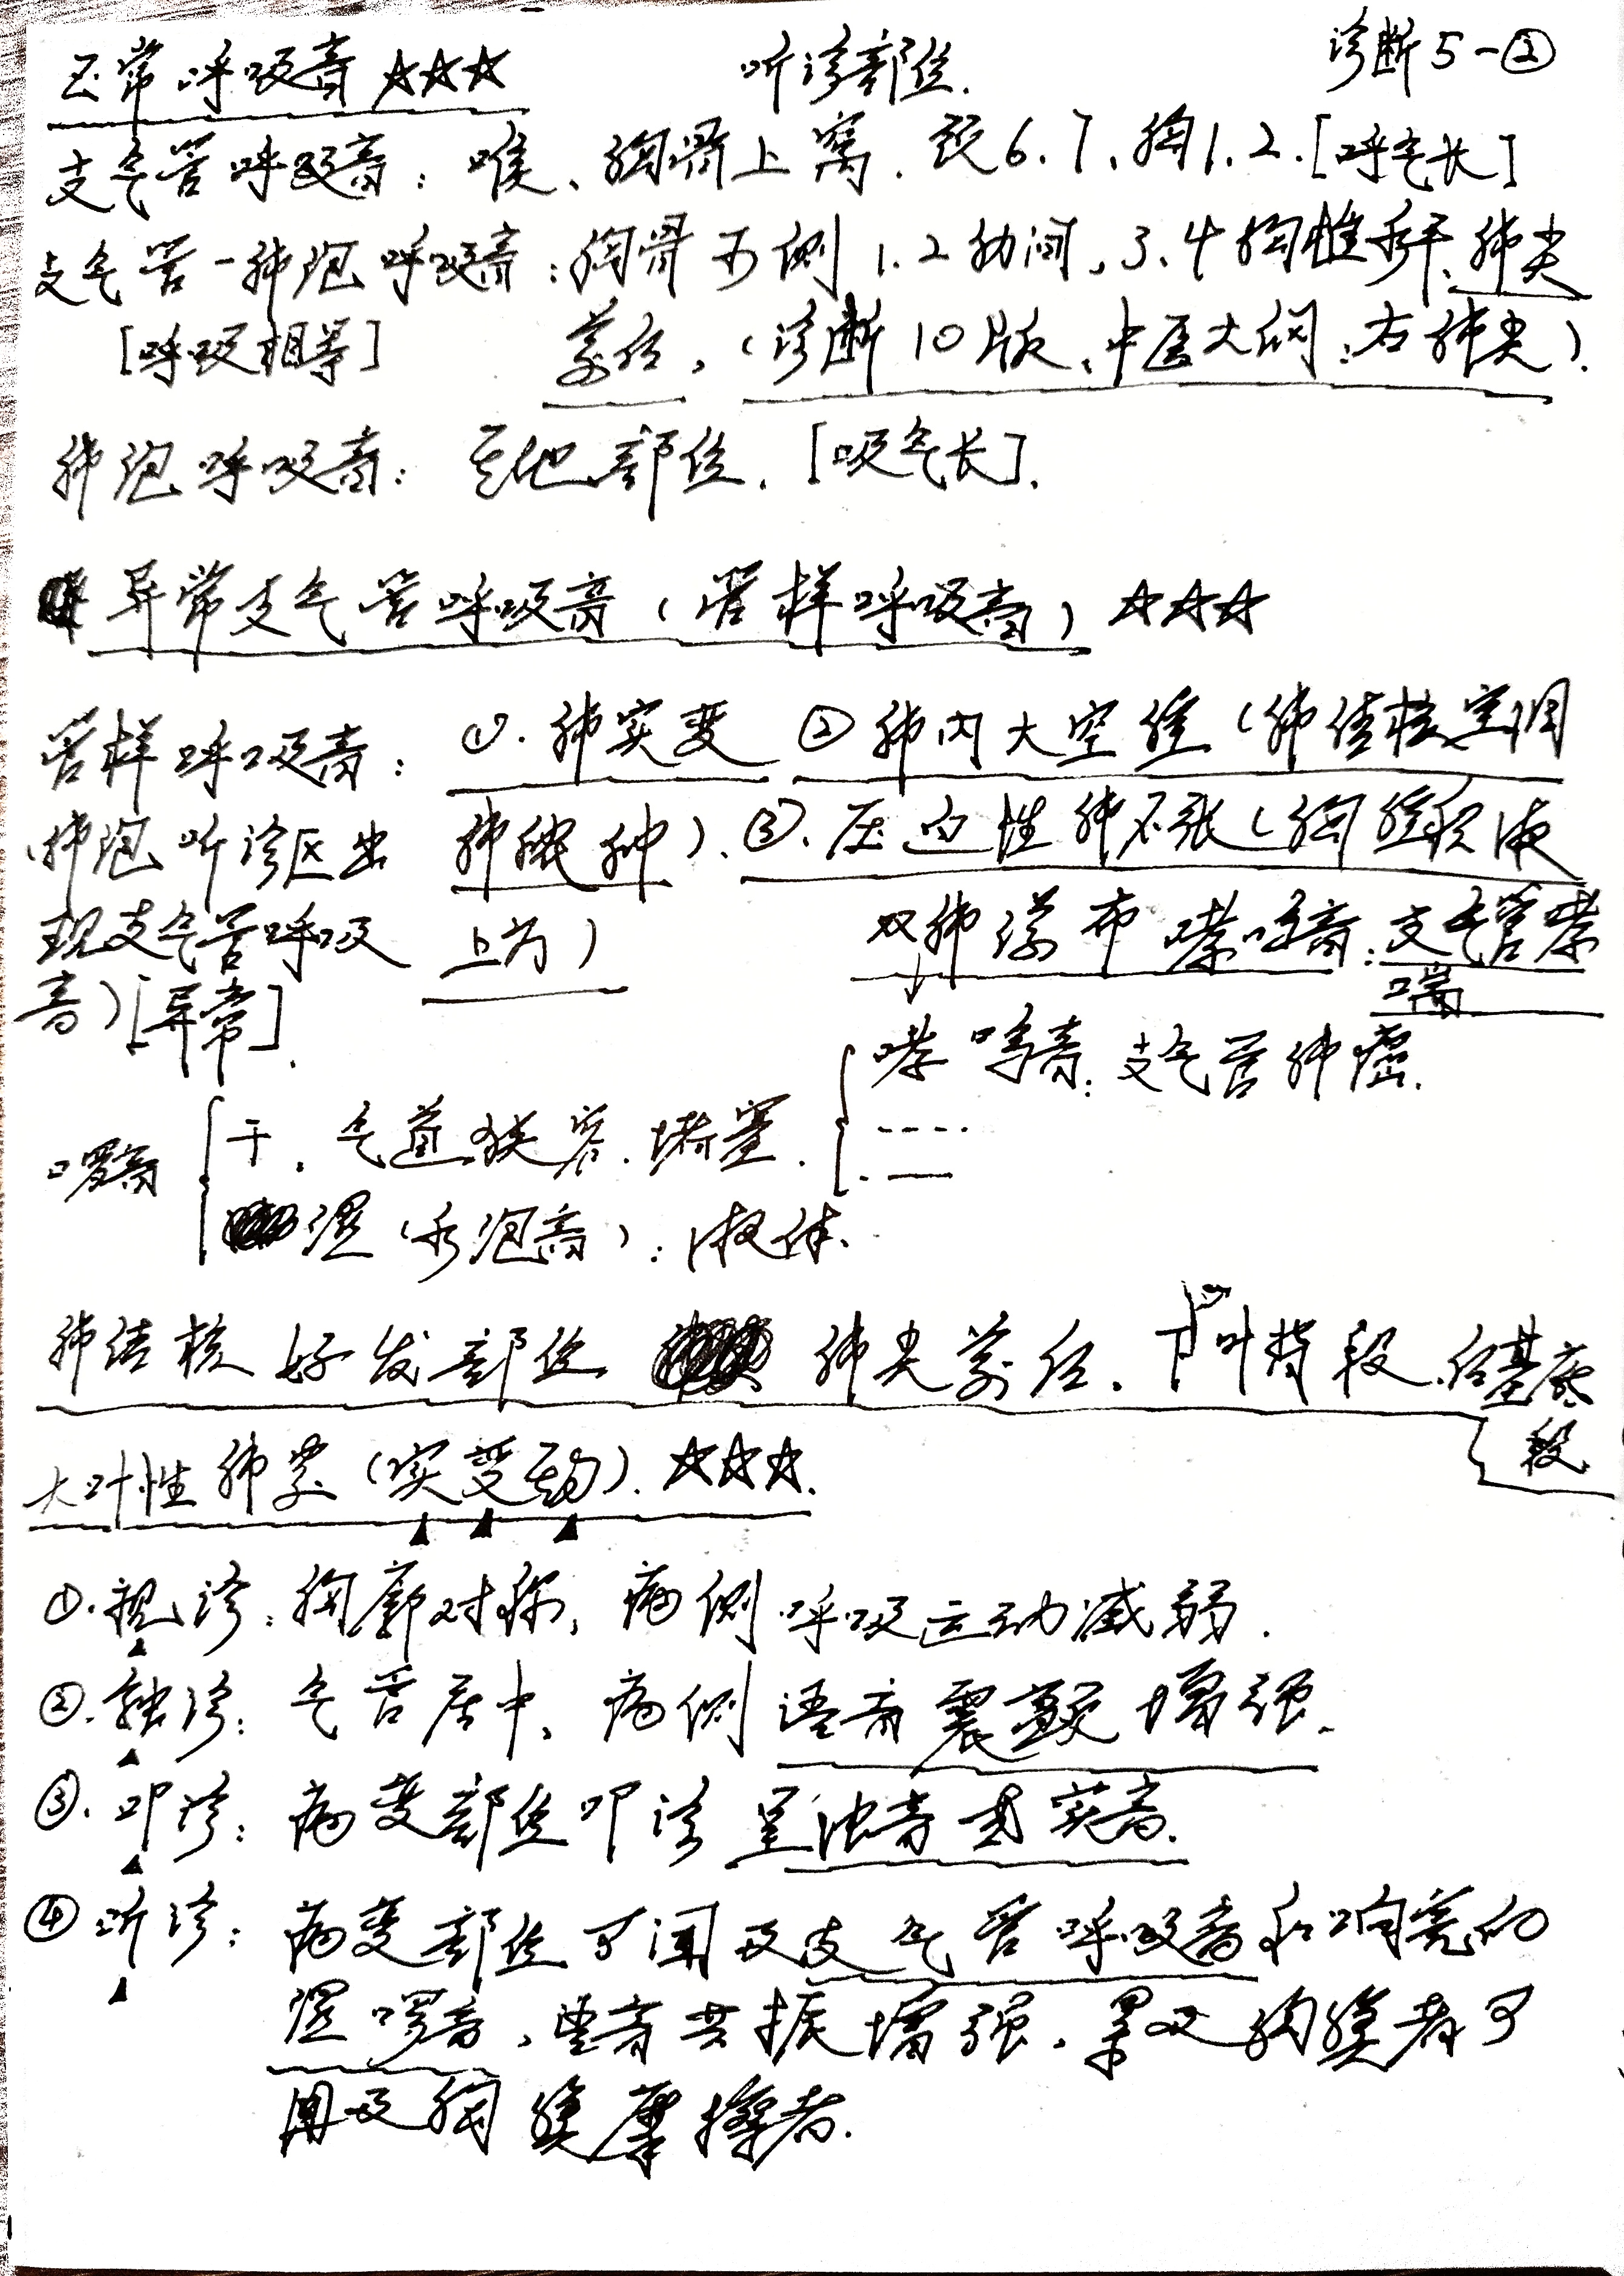 正常呼吸音☆☆☆ 听诊部位. 诊断5-②
支气管呼吸音:喉、胸骨上窝.颈6.7、胸1.2.[呼气长]
支气管-肺泡呼吸音:胸骨两侧1.2肋间,3、4胸椎水平、肺尖
[呼吸相等] 前后,(诊断10版、中医大纲:右肺尖).
肺泡呼吸音:其他部位.[吸气长].
异常支气管呼吸音(管样呼吸音)☆☆☆
管样呼吸音: ①.肺实变 ②肺内大空腔(肺结核空洞
(肺泡听诊区出 肺脓肿).③.压迫性肺不张(胸腔积液
现支气管呼吸 上方) 双肺满布哮鸣音:支气管哮
音)[异常]. 喘
哮鸣音:支气管肺癌.
啰音 干.气道狭窄.堵塞.
湿(水泡音):液体.
肺结核好发部位 肺尖前后.下叶背段.后基底
段
大叶性肺炎(实变期).☆☆☆.
①.视诊:胸廓对称,病侧呼吸运动减弱.
②.触诊:气管居中、病侧语音震颤增强.
③.叩诊:病变部位叩诊呈浊音或实音.
④听诊:病变部位可闻及支气管呼吸音和响亮的
湿啰音,语音共振增强.累及胸膜者可
闻及胸膜摩擦音.